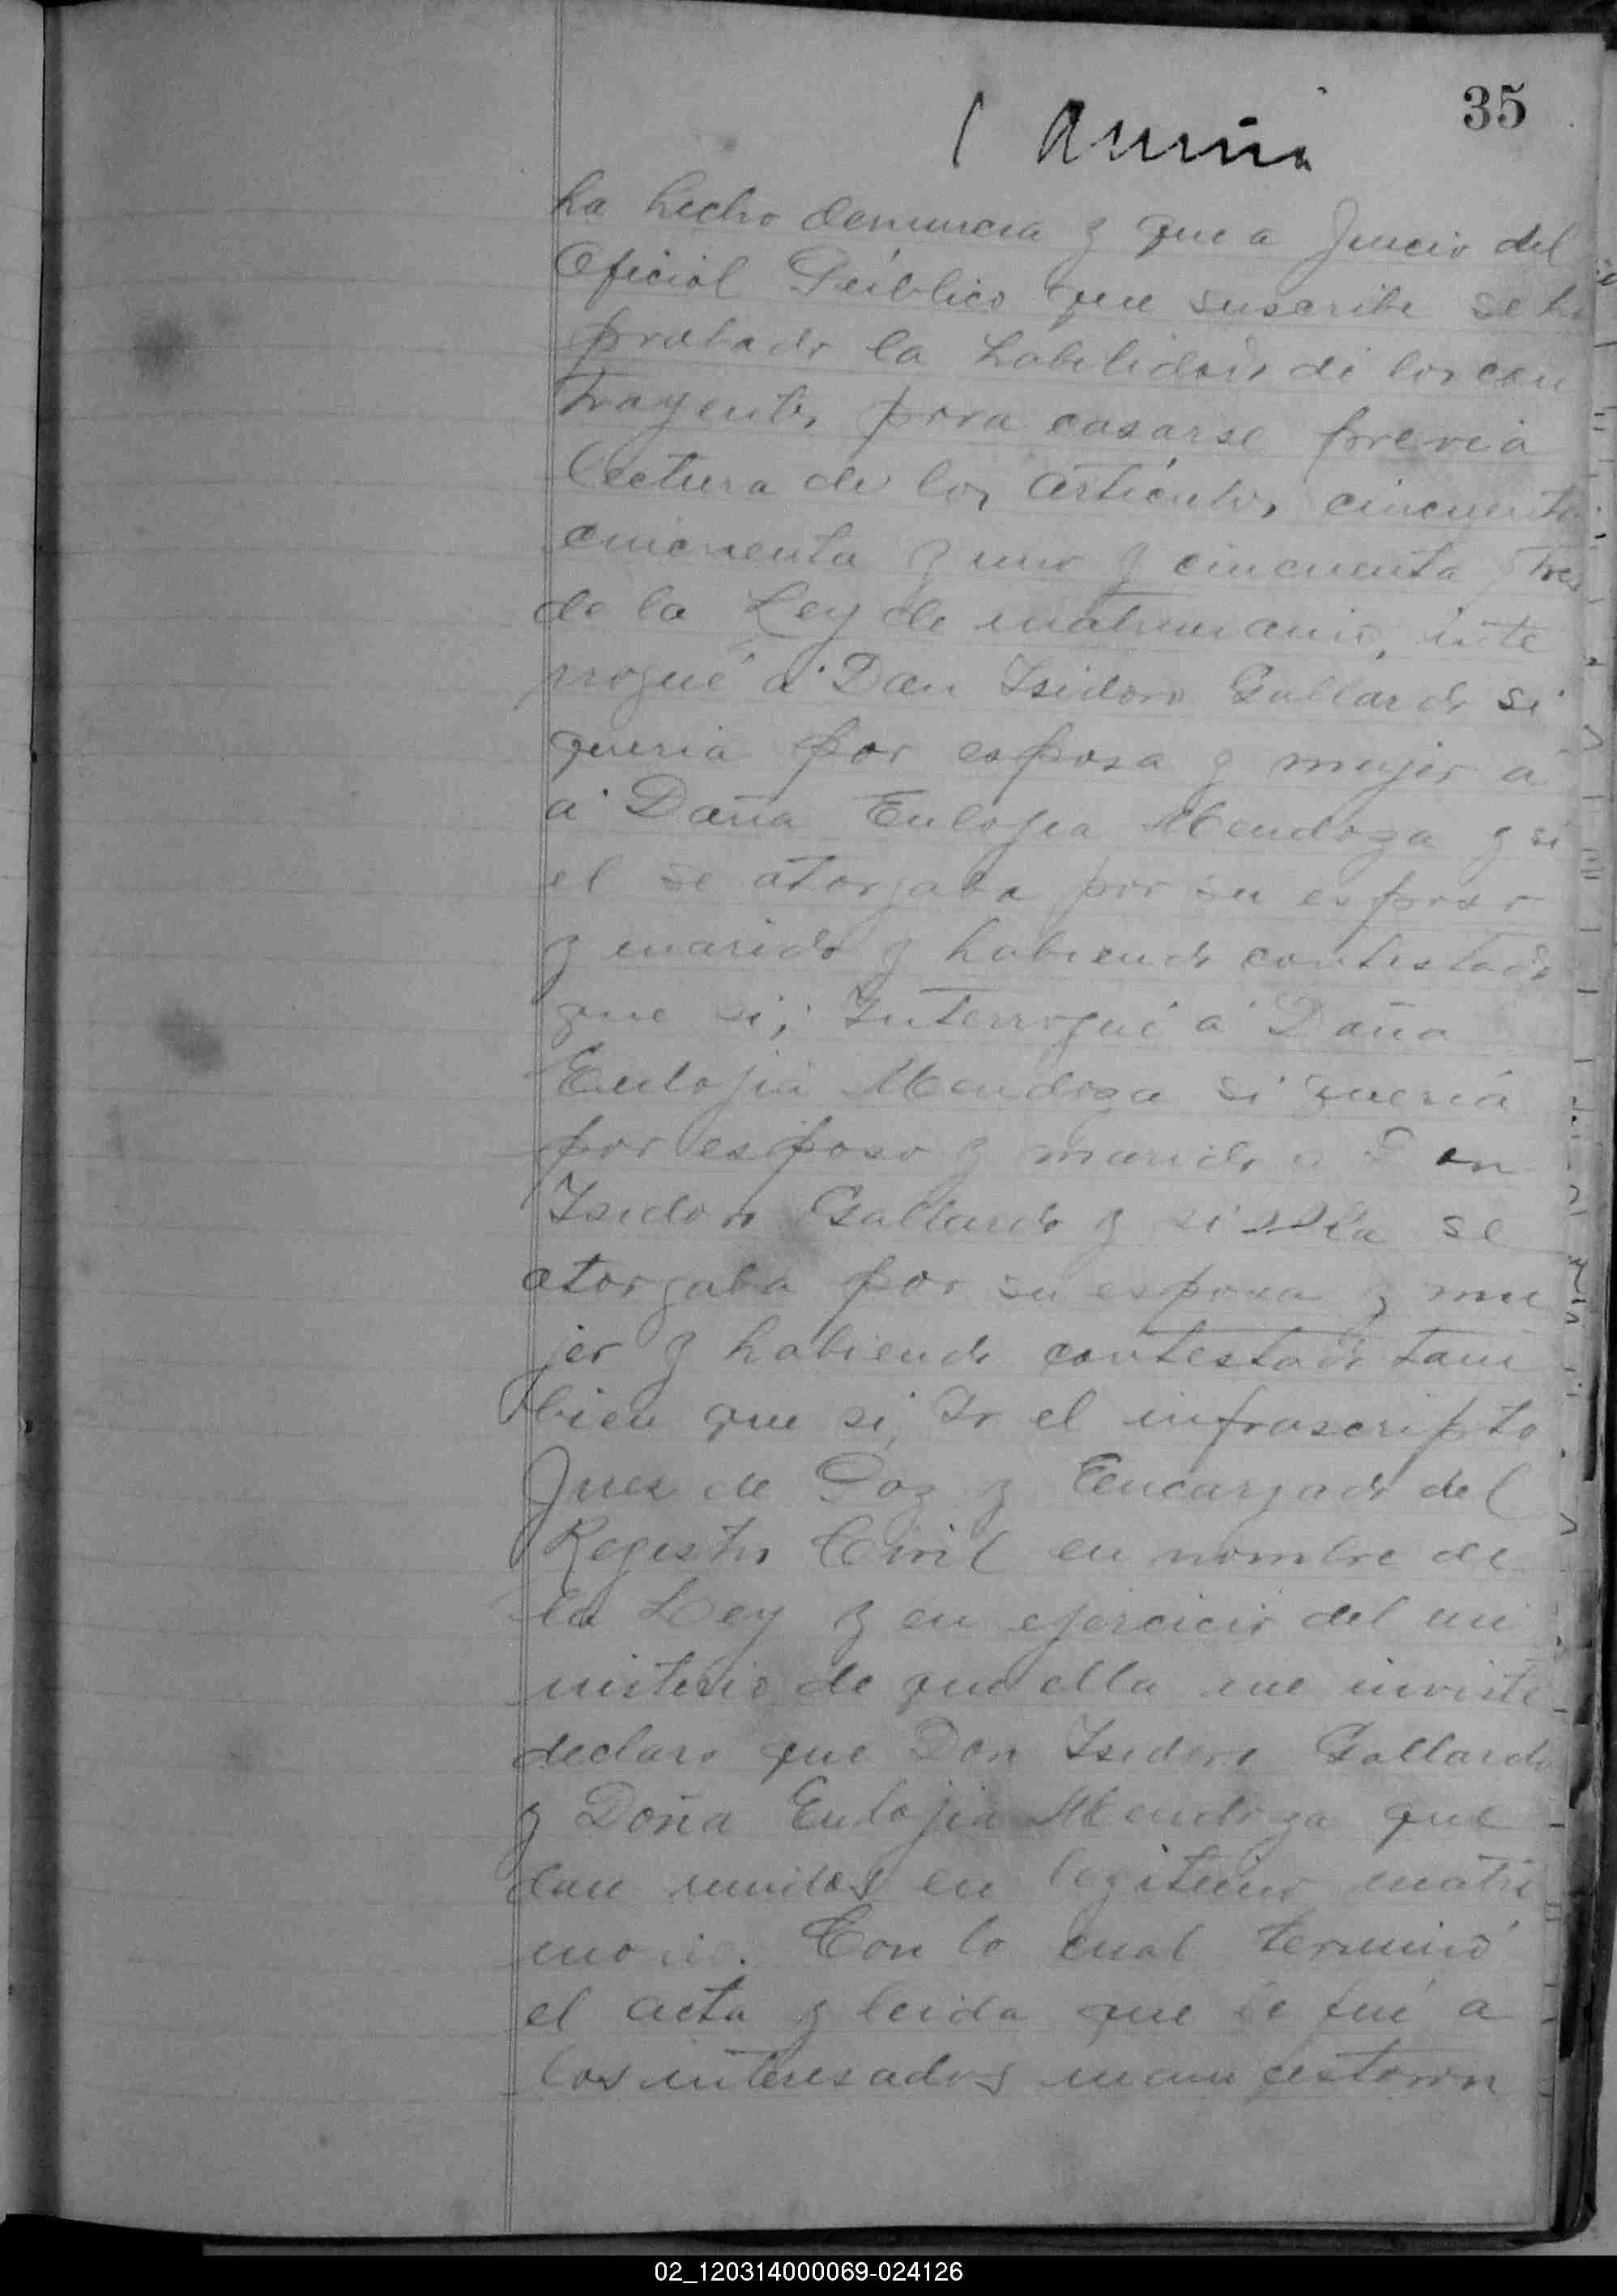 35
ha hecho denuncia y que a Juicio del
Oficial Público que suscribe se ha
probado la habilidad de los con
trayentes para casarse previa
lectura de los artículos cincuenta
cincuenta y uno y cincuenta y tres
de la Ley de matrimonio, inte
rrogué á Don Isidoro Gallardo si
queria por esposa y mujer a
a Doña Eulojia Mendoza y si
el se otorgaba por su esposo
y marido y habiendo contestado
que si; Interrogué á Doña
Eulojia Mendoza si queria
por esposo y marido a Don
Isidoro Gallardo y si ella se
otorgaba por su esposa y mu
jer y habiendo contestado tam
bien que si, Yo el infrascripto
Juez de Paz y Encargado del
Registro Civil en nombre de
la Ley y en ejercicio del mi
nisterio de que ella me inviste
declaro que Don Isidoro Gallardo
y Doña Eulojia Mendoza que
dan unidos en legitimo matri
monio. Con lo cual terminó
el acta y leida que le fué a
los interesados manifestaron
02_120314000069-024126